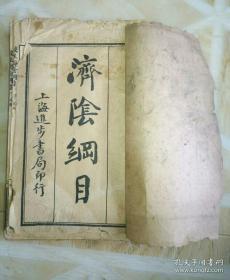 濟陰綱目
上海進步書局印行
孔夫子旧书网